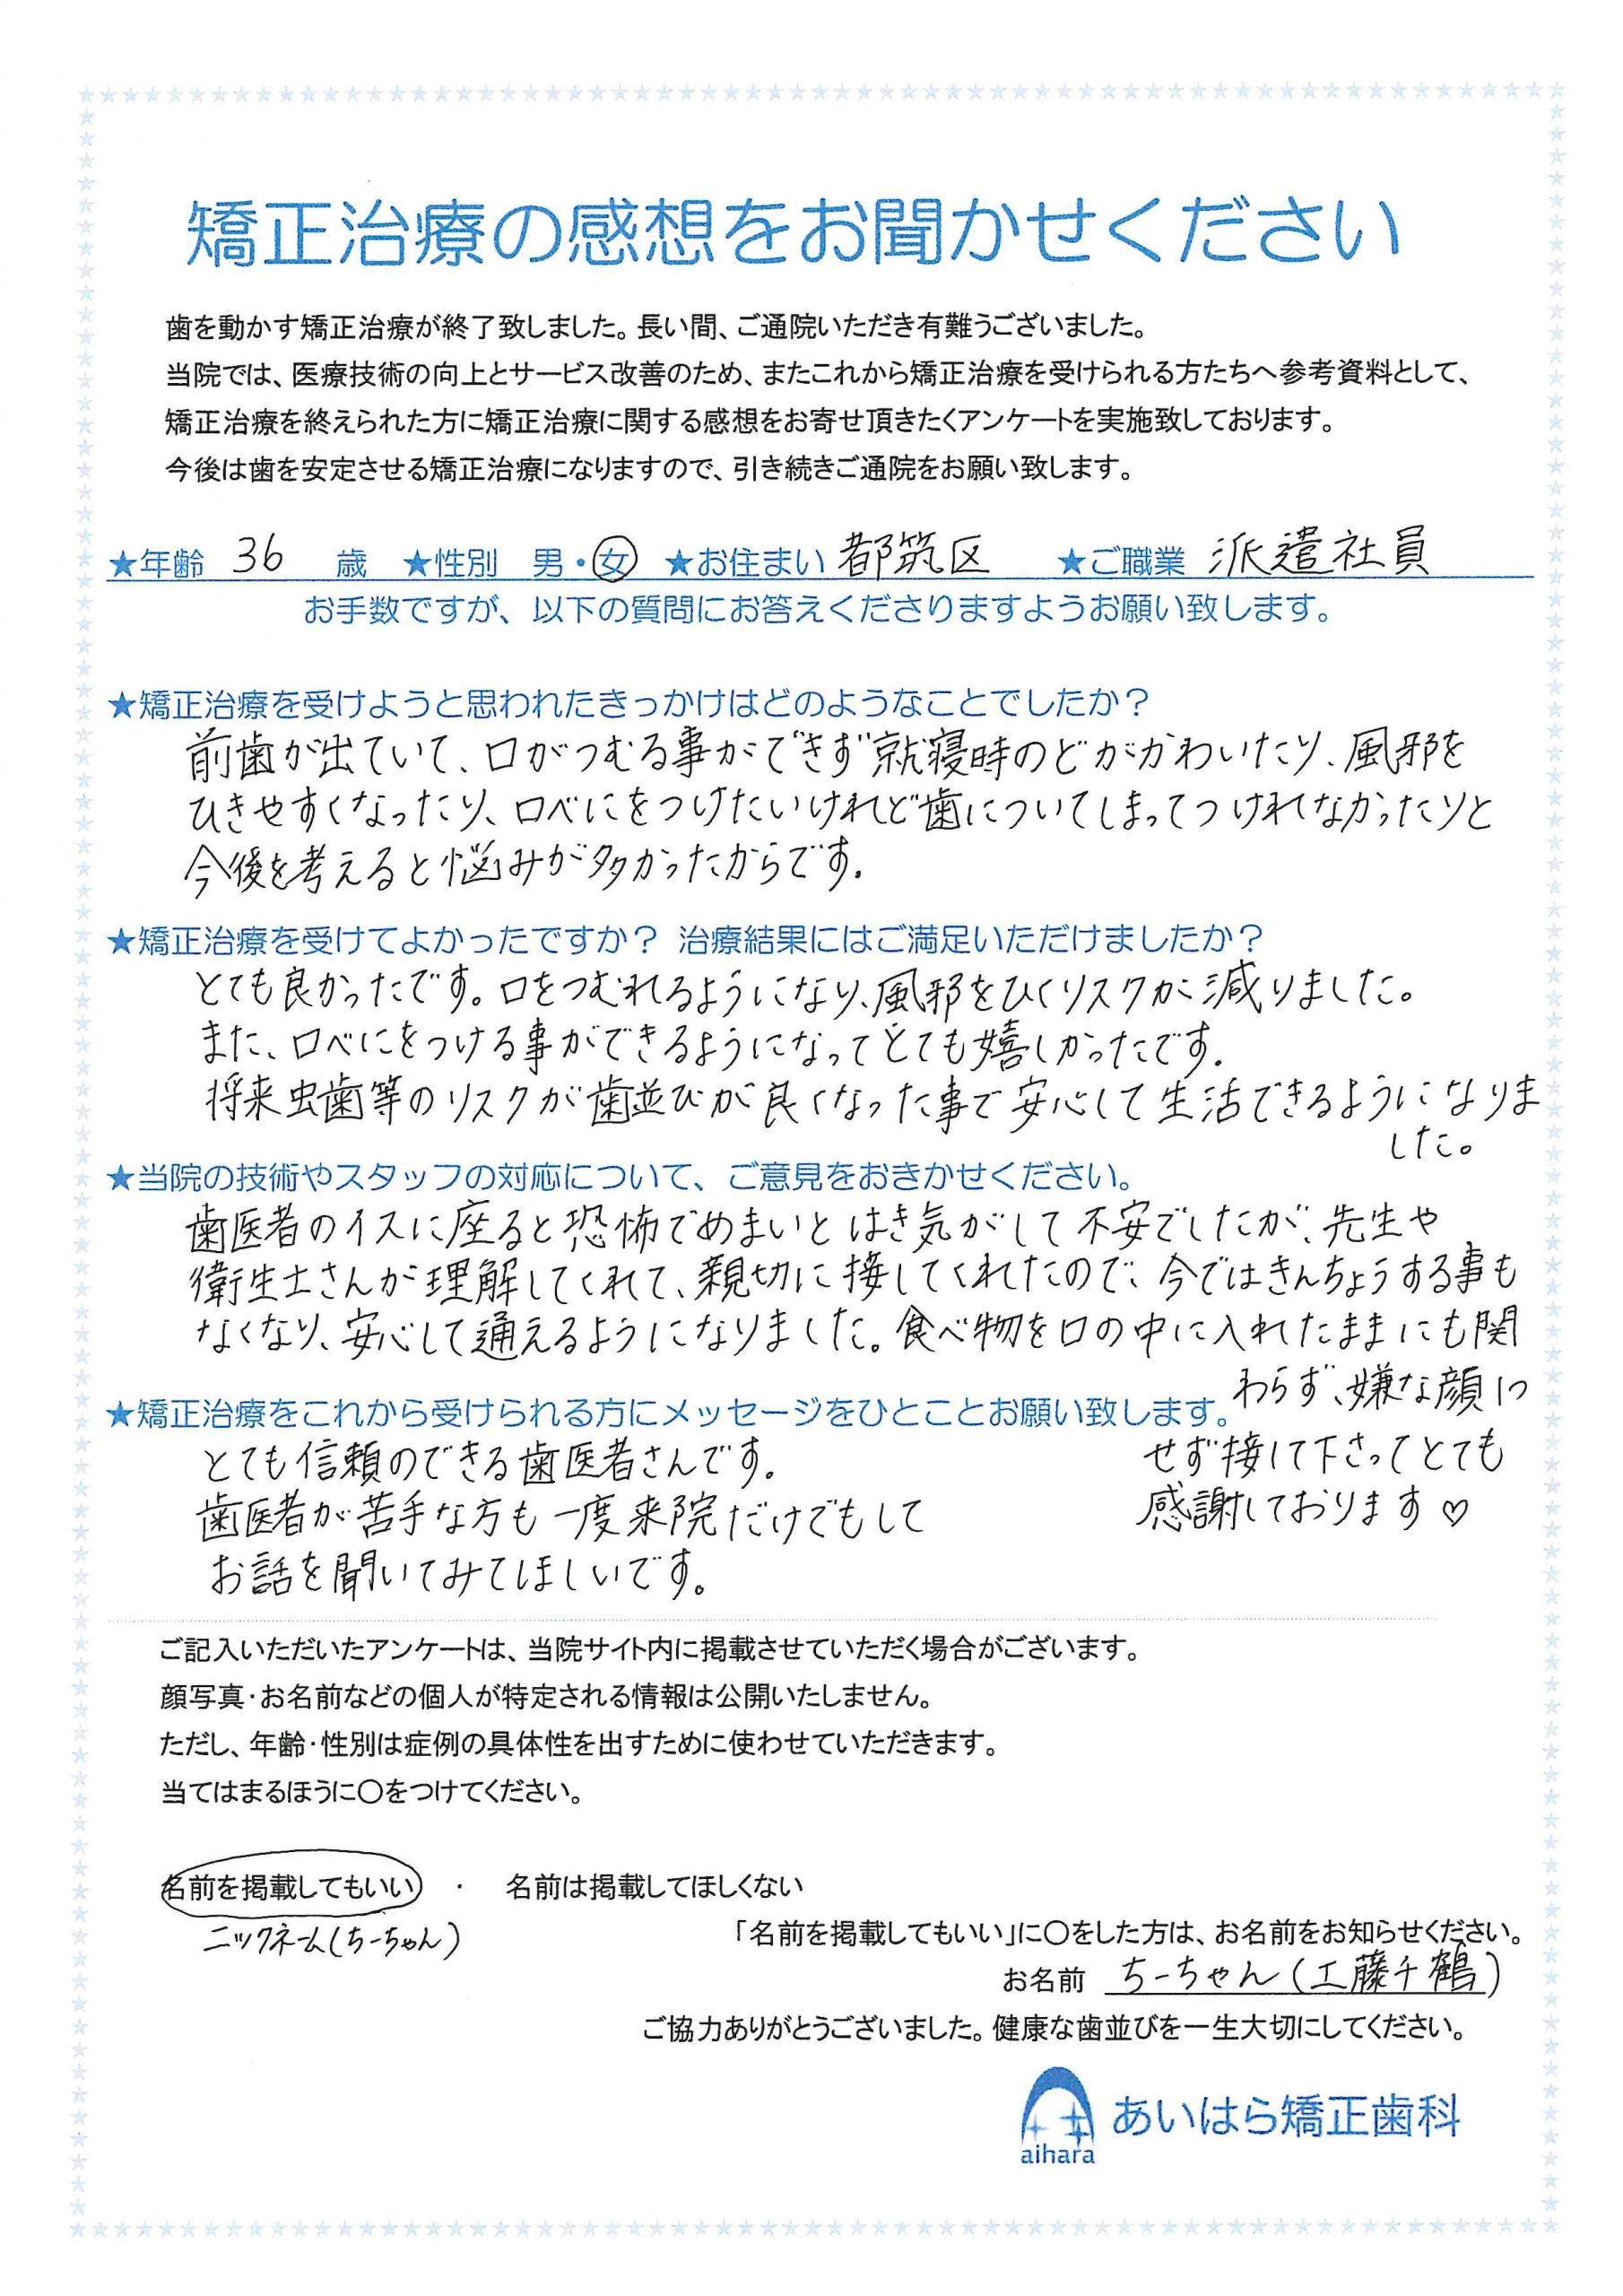 矯正治療の感想をお聞かせください
歯を動かす矯正治療が終了致しました。長い間、ご通院いただき有難うございました。
当院では、医療技術の向上とサービス改善のため、またこれから矯正治療を受けられる方たちへ参考資料として、
矯正治療を終えられた方に矯正治療に関する感想をお寄せ頂きたくアンケートを実施致しております。
今後は歯を安定させる矯正治療になりますので、引き続きご通院をお願い致します。
★年齢 36 歳 ★性別 男・女 ★お住まい 都筑区 ★ご職業 派遣社員
お手数ですが、以下の質問にお答えくださりますようお願い致します。
★矯正治療を受けようと思われたきっかけはどのようなことでしたか？
前歯が出ていて、口がつむる事ができず就寝時のどがかわいたり、風邪を
ひきやすくなったり、口べにをつけたいけれど歯についてしまってつけれなかったりと
今後を考えると悩みが多かったからです。
★矯正治療を受けてよかったですか？ 治療結果にはご満足いただけましたか？
とても良かったです。口をつむれるようになり、風邪をひくリスクが減りました。
また、口べにをつける事ができるようになってとても嬉しかったです。
将来虫歯等のリスクが歯並びが良くなった事で安心して生活できるようになりま
した。
★当院の技術やスタッフの対応について、ご意見をおきかせください。
歯医者のイスに座ると恐怖でめまいとはき気がして不安でしたが、先生や
衛生士さんが理解してくれて、親切に接してくれたので、今ではきんちょうする事も
なくなり、安心して通えるようになりました。食べ物を口の中に入れたままにも関
わらず、嫌な顔1つ
せず接して下さってとても
感謝しております♡
★矯正治療をこれから受けられる方にメッセージをひとことお願い致します。
とても信頼のできる歯医者さんです。
歯医者が苦手な方も一度来院だけでもして
お話を聞いてみてほしいです。
ご記入いただいたアンケートは、当院サイト内に掲載させていただく場合がございます。
顔写真・お名前などの個人が特定される情報は公開いたしません。
ただし、年齢・性別は症例の具体性を出すために使わせていただきます。
当てはまるほうに〇をつけてください。
名前を掲載してもいい ・ 名前は掲載してほしくない
ニックネーム(ちーちゃん)
「名前を掲載してもいい」に〇をした方は、お名前をお知らせください。
お名前 ちーちゃん(工藤千鶴)
ご協力ありがとうございました。健康な歯並びを一生大切にしてください。
aihara あいはら矯正歯科